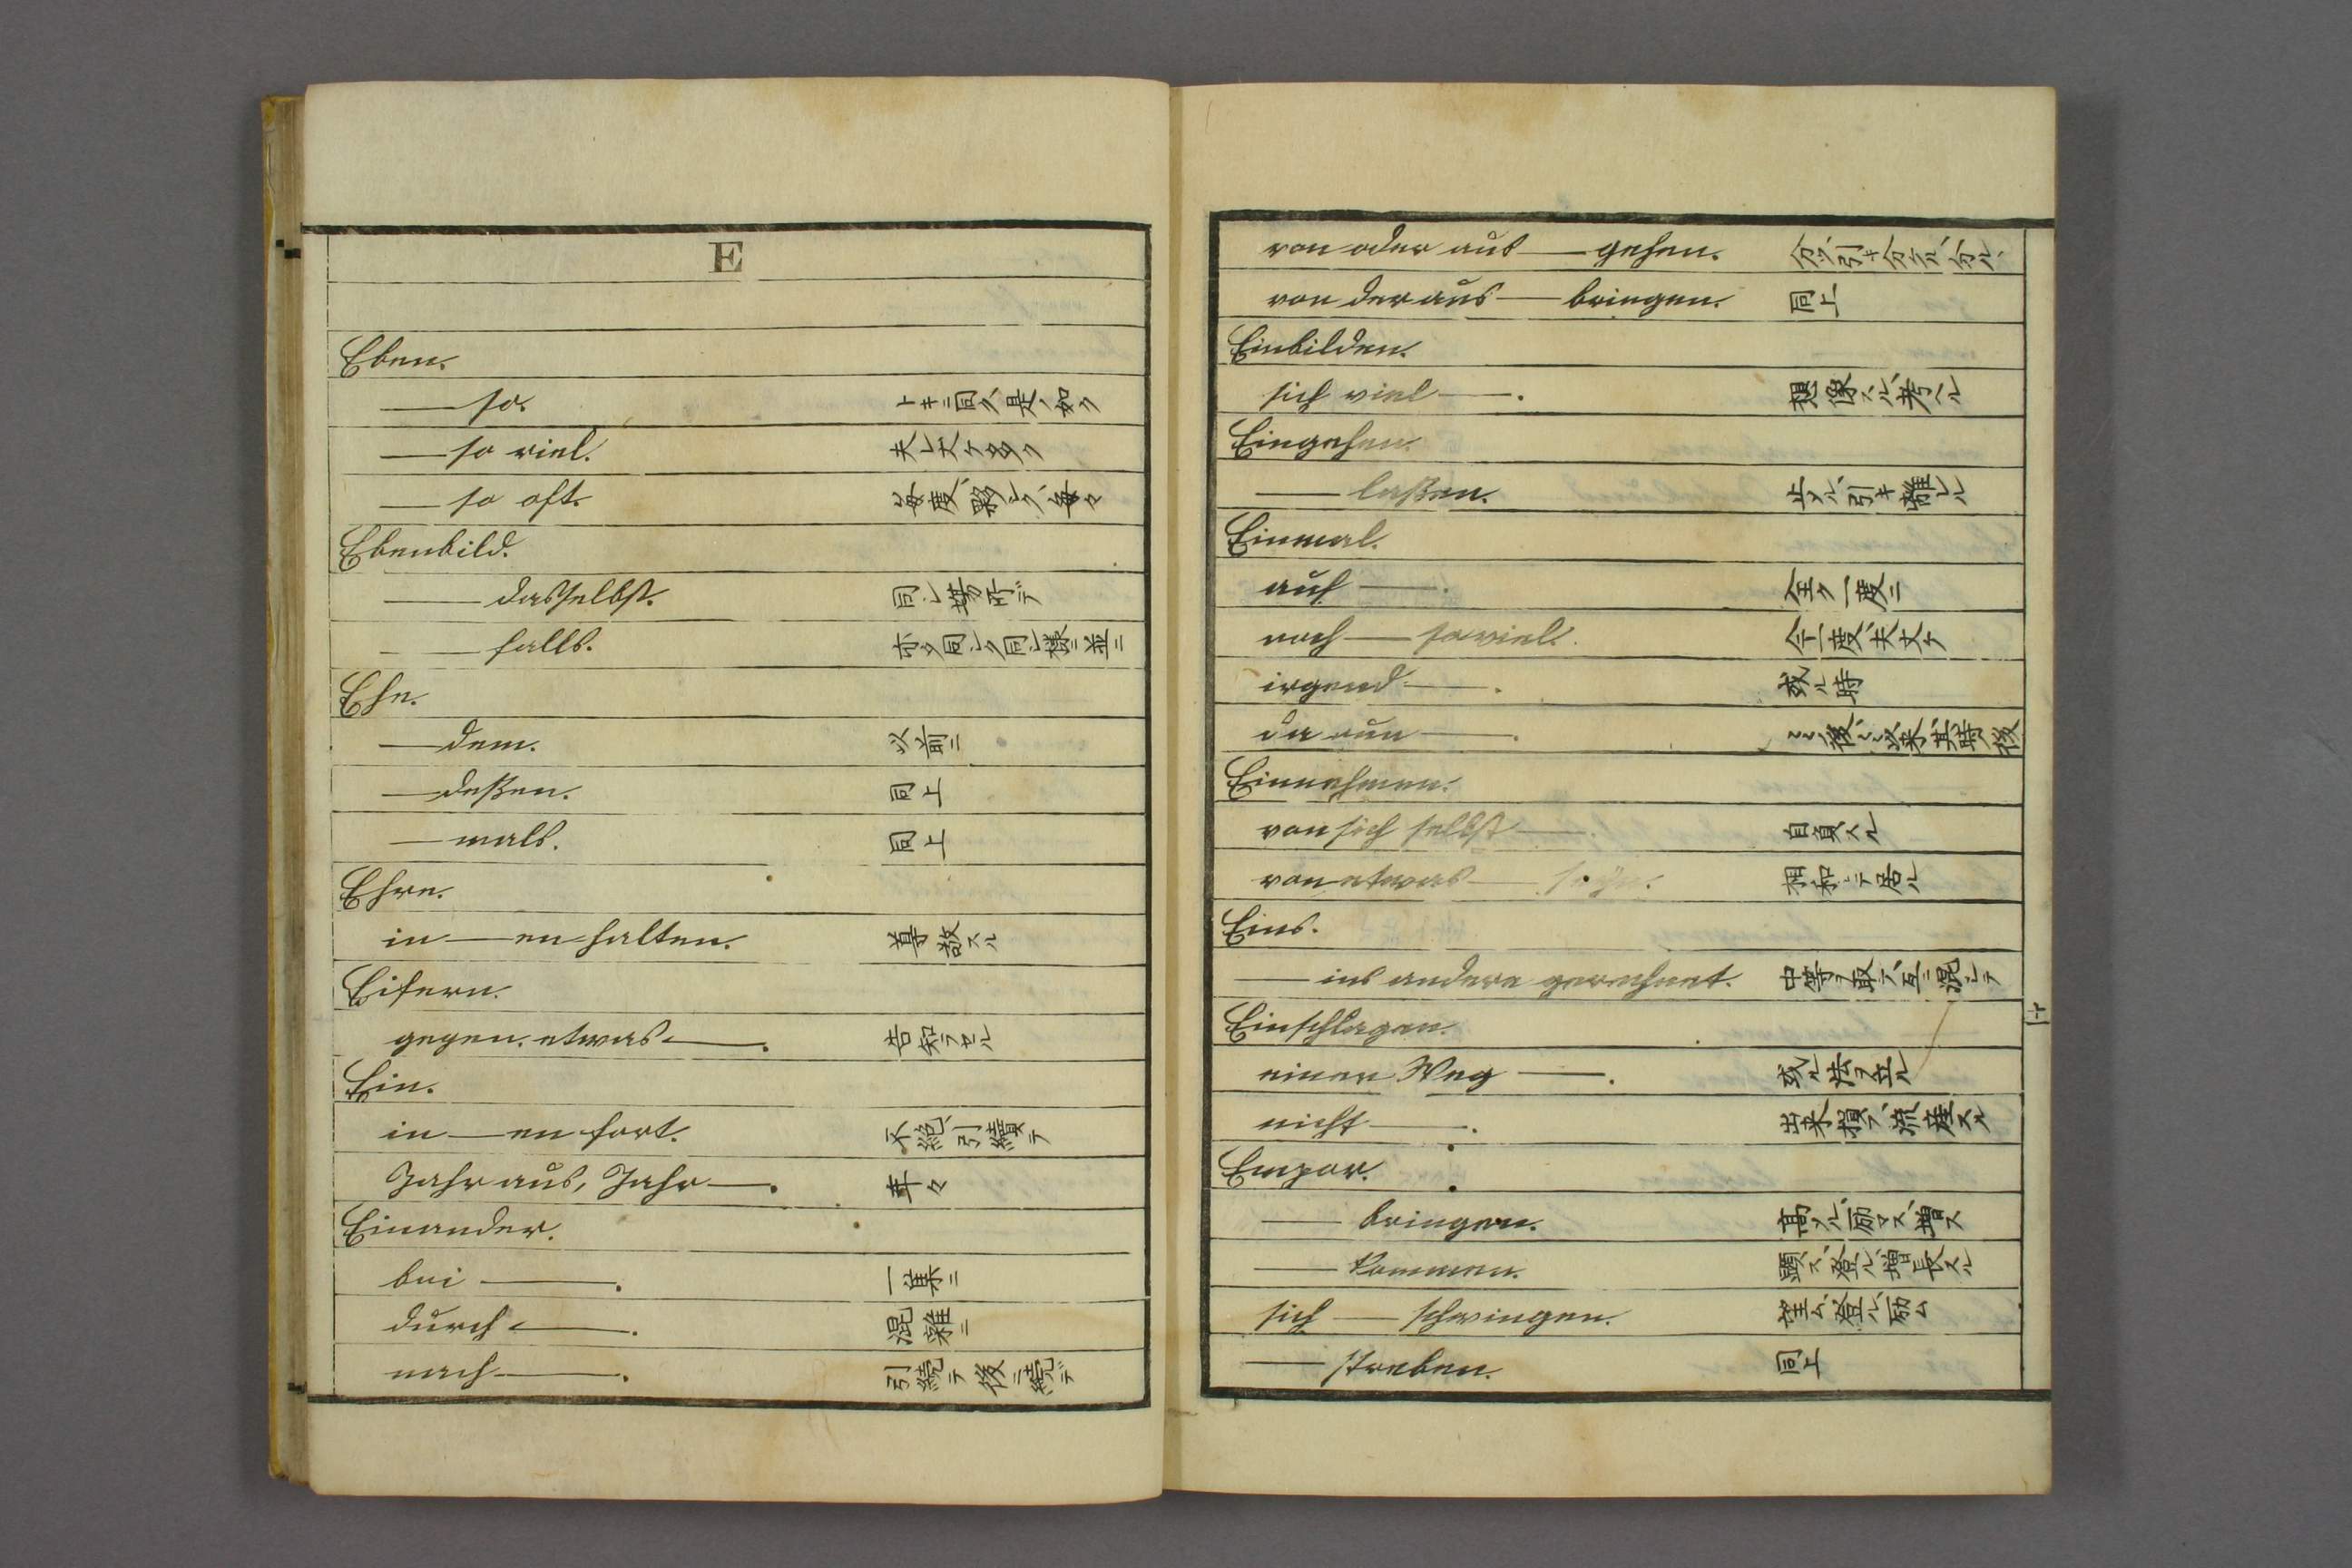 E
Eben.
— so. トキニ同ク、是ノ如ク
— so viel. 夫レ丈ケ多ク
— so oft. 毎度、夥シク、毎々
Ebenbild.
— dasselbst. 同シ場所デ
— falls. 亦タ同シク同シ様ニ並ニ
Ehe.
— dem. 以前ニ
— deßen. 同上
— mals. 同上
Ehre.
in — en halten. 尊敬スル
Eifern.
gegen etwas —. 告知ラセル
Ein.
in — en fort. 不絶、引續テ
Jahr aus, Jahr —. 年々
Einander.
bei —. 一集ニ
durch —. 混雜ニ
nach —. 引続テ後ニ続デ
von oder aus — gehen. 分ツ、引キ分ケル、分ル、
von der aus — bringen. 同上
Einbilden.
sich viel —. 想像スル、考ヘル
Eingehen.
— laßen. 止メル、引キ離レル
Einmal.
auf —. 全ク一度ニ
noch — so viel. 今一度、夫丈ケ
irgend —. 或ル時
da nun —. 後、以来、其時後
Einnehmen.
von sich selbst —. 自負スル
von etwas — seyn. 相和シテ居ル
Eins.
— ins andere gerechnet. 中等ヲ取テ、互ニ混シテ
Einschlagen.
einen Weg —. 或ル法ヲ立ル
nicht —. 出来損フ、流産スル
Empor.
— bringen. 高メル、励マス、増ス
— kommen. 顕ス、登ル、増長スル
sich — schwingen. 望ム、登ル、励ム
— streben. 同上
十